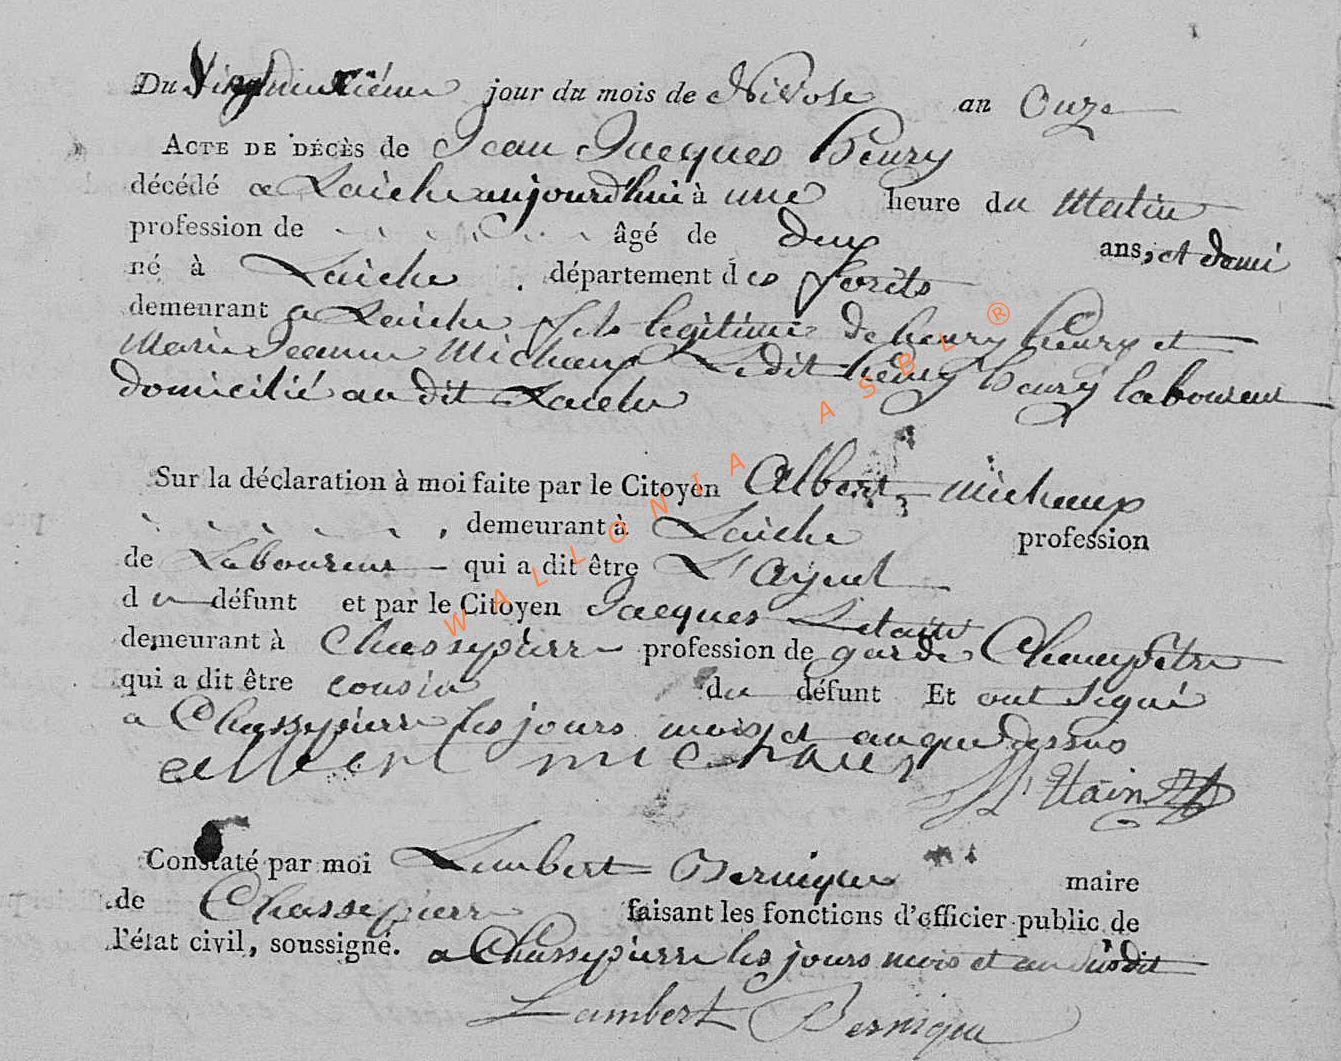 Du Vingtdeuxième jour du mois de Nivose an Onze
ACTE DE DÉCÈS de Jean Jacques henry
décédé a Laiche aujourd'hui à une heure du Matin
profession de âgé de deux ans, et demi
né à Laiche département des forêts
demeurant a Laiche fils legitime de henry henry et
Marie Jeanne Michaux Ledit henry henry laboureur
domicilié au dit Laiche
Sur la déclaration à moi faite par le Citoyen Albert Michaux
, demeurant à Laiche profession
de Laboureur qui a dit être L'Ayeul
du défunt et par le Citoyen Jacques
demeurant à Chassepierre profession de garde Champêtre
qui a dit être cousin du défunt Et ont signé
a Chassepierre les jours mois et an que dessus
albert michaux
Constaté par moi Lambert Bernique maire
de Chassepierre faisant les fonctions d'officier public de
l'état civil, soussigné. a Chassepierre les jours mois et an susdit
Lambert Bernique
WALLONIA ASBL ®